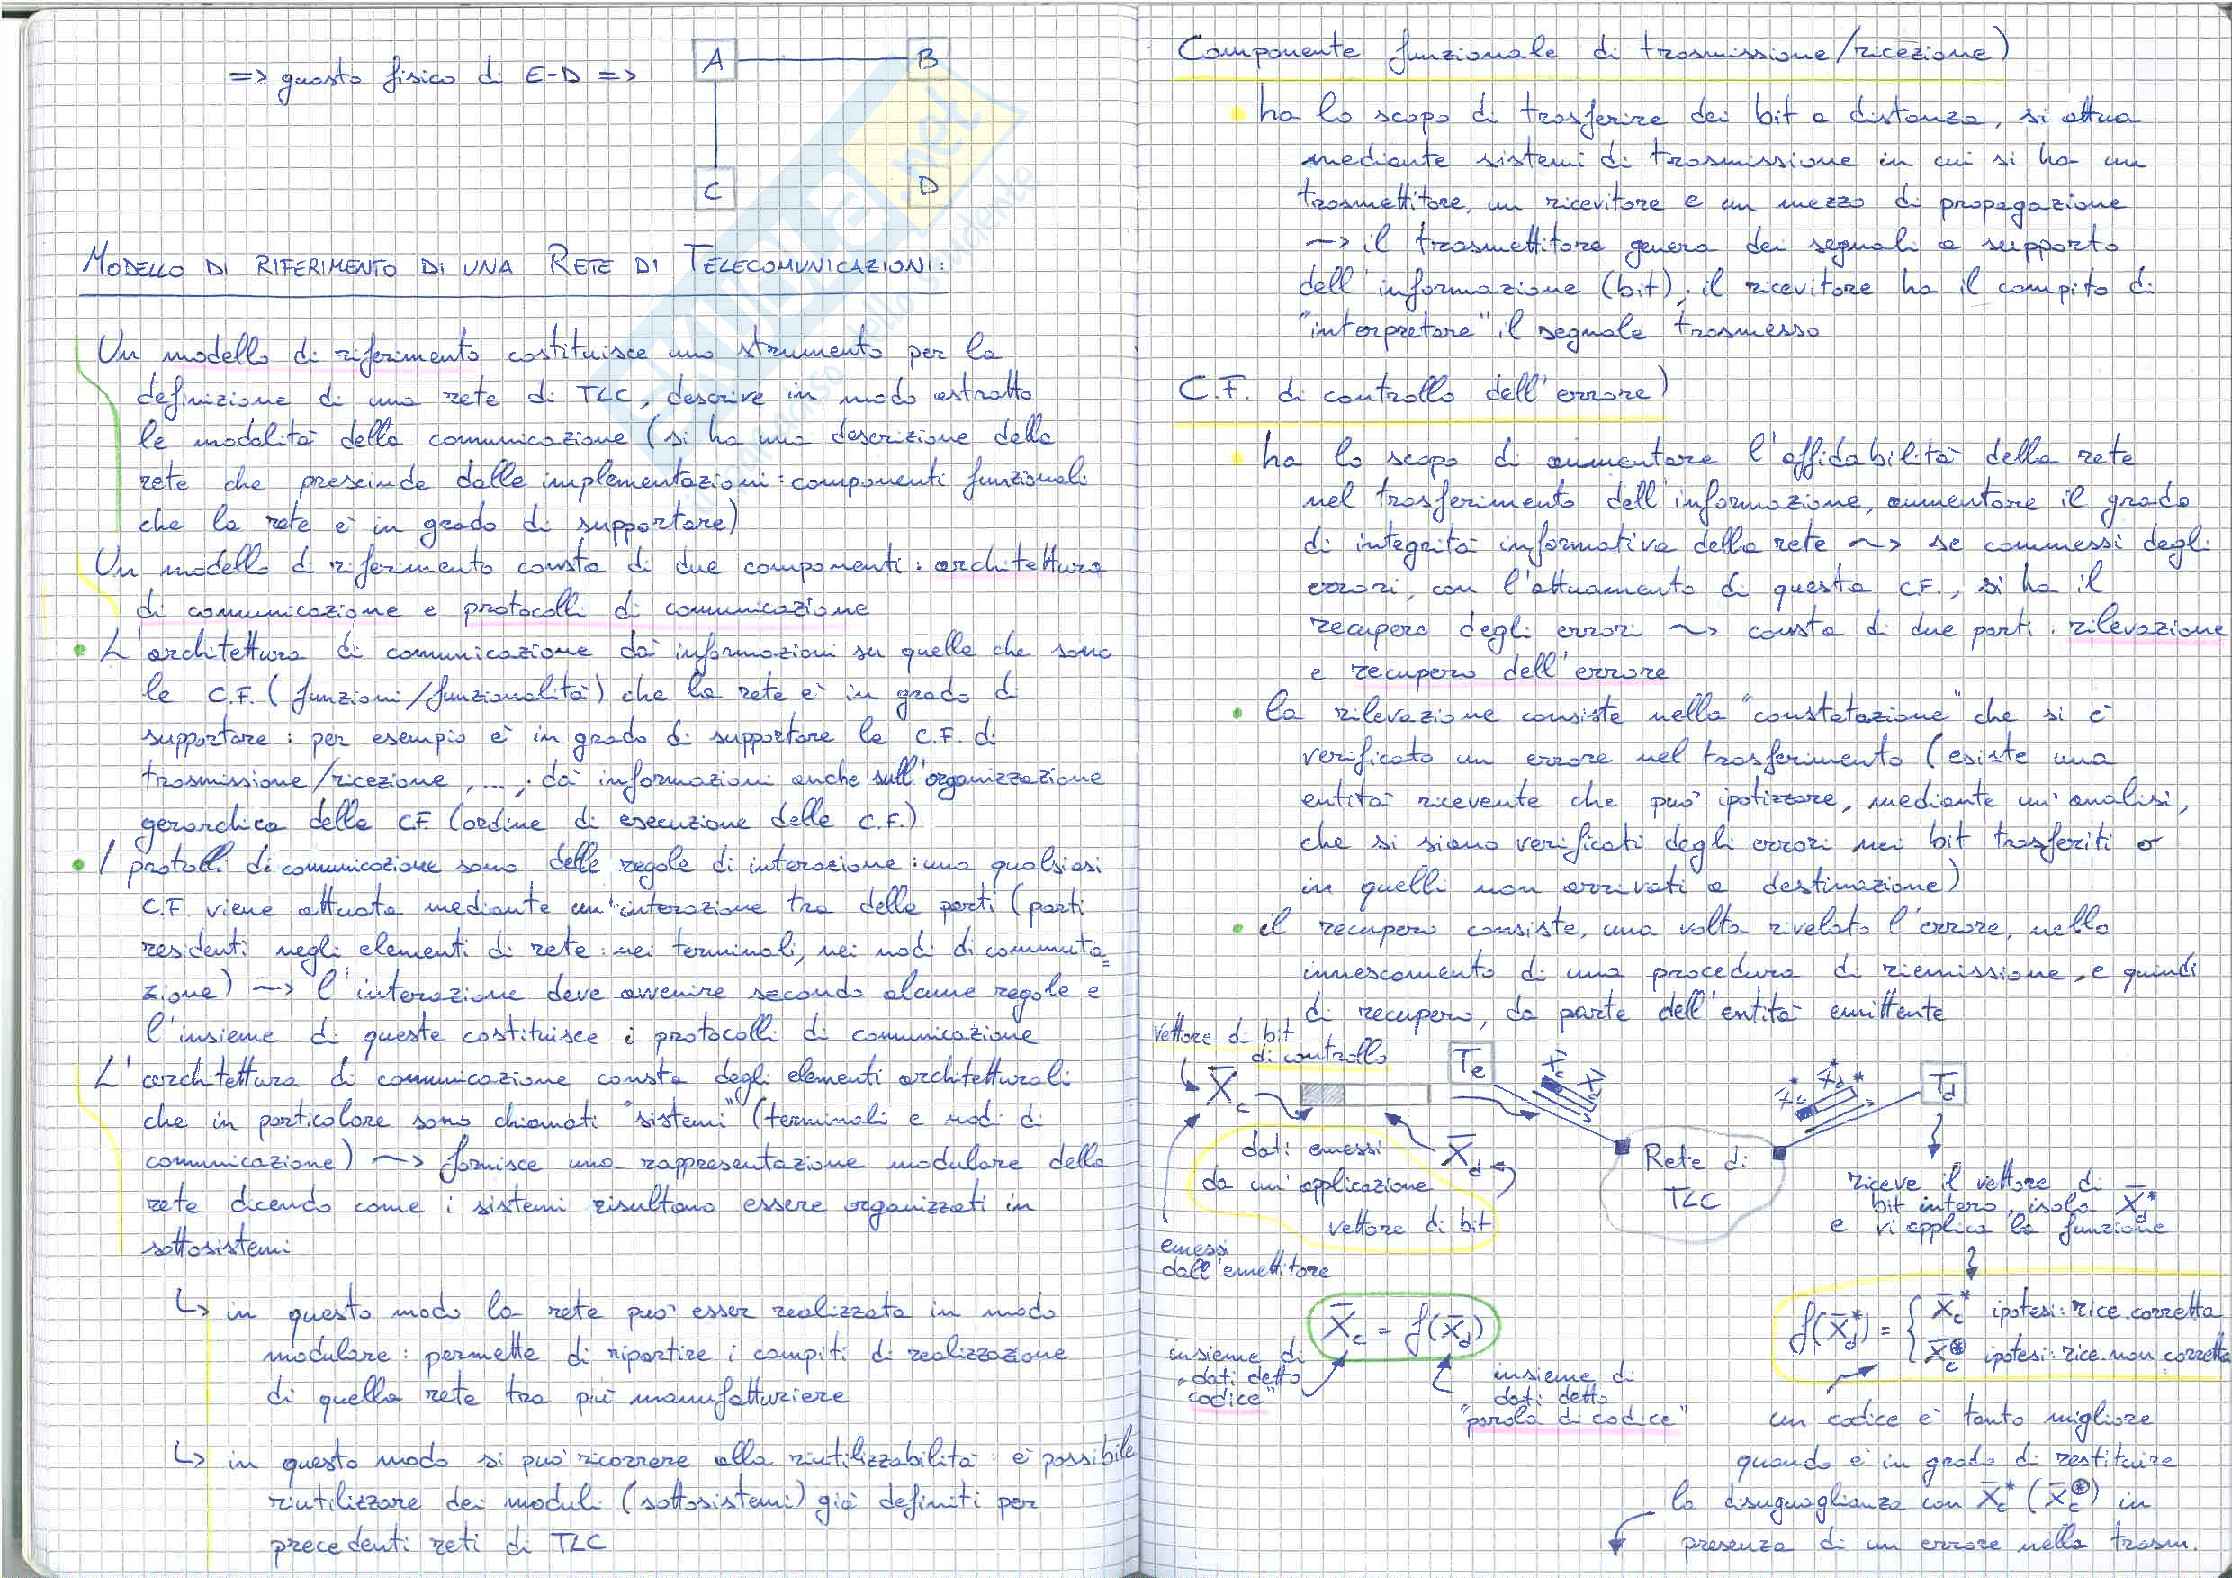 => guasto fisico di E-D =>
A
B
C
D
MODELLO DI RIFERIMENTO DI UNA RETE DI TELECOMUNICAZIONI:
Un modello di riferimento costituisce uno strumento per la
definizione di una rete di TLC, descrive in modo astratto
le modalità della comunicazione (si ha una descrizione della
rete che prescinde dalle implementazioni: componenti funzionali
che la rete è in grado di supportare)
Un modello di riferimento consta di due componenti: architettura
di comunicazione e protocolli di comunicazione
• L'architettura di comunicazione dà informazioni su quelle che sono
le C.F. (funzioni/funzionalità) che la rete è in grado di
supportare: per esempio è in grado di supportare le C.F. di
trasmissione/ricezione, ...; dà informazioni anche sull'organizzazione
gerarchica delle C.F. (ordine di esecuzione delle C.F.)
• I protolli di comunicazione sono delle regole di interazione: una qualsiasi
C.F. viene attuata mediante un'interazione tra delle parti (parti
residenti negli elementi di rete: nei terminali, nei nodi di commuta=
zione) ~> l'interazione deve avvenire secondo alcune regole e
l'insieme di queste costituisce i protocolli di comunicazione
L'architettura di comunicazione consta degli elementi architetturali
che in particolare sono chiamati "sistemi" (terminali e nodi di
comunicazione) ~> fornisce una rappresentazione modulare della
rete dicendo come i sistemi risultano essere organizzati in
sottosistemi
↳ in questo modo la rete può esser realizzata in modo
modulare: permette di ripartire i compiti di realizzazione
di quella rete tra più manufatturiere
↳ in questo modo si può ricorrere alla riutilizzabilità: è possibile
riutilizzare dei moduli (sottosistemi) già definiti per
precedenti reti di TLC
Componente funzionale di trasmissione/ricezione)
• ha lo scopo di trasferire dei bit a distanza, si attua
mediante sistemi di trasmissione in cui si ha un
trasmettitore, un ricevitore e un mezzo di propagazione
~> il trasmettitore genera dei segnali a supporto
dell'informazione (bit), il ricevitore ha il compito di
"interpretare" il segnale trasmesso
C.F. di controllo dell'errore)
• ha lo scopo di aumentare l'affidabilità della rete
nel trasferimento dell'informazione, aumentare il grado
di integrità informativa della rete ~> se commessi degli
errori, con l'attuamento di questa C.F., si ha il
recupero degli errori ~> consta di due parti: rilevazione
e recupero dell'errore
• la rilevazione consiste nella "constatazione" che si è
verificato un errore nel trasferimento (esiste una
entità ricevente che può ipotizzare, mediante un'analisi,
che si siano verificati degli errori nei bit trasferiti o
in quelli non arrivati a destinazione)
• il recupero consiste, una volta rivelato l'errore, nello
innescamento di una procedura di riemissione, e quindi
di recupero, da parte dell'entità emittente
vettore di bit
di controllo
X̄c
Te
X̄c X̄d
X̄c* X̄d*
Td
dati emessi
da un'applicazione
vettore di bit
X̄d
Rete di
TLC
emessi
dall'emettitore
riceve il vettore di
bit intero, isola X̄d*
e vi applica la funzione
X̄c = f(X̄d)
f(X̄d*) = { X̄c* ipotesi: rice. corretta
X̄c⊛ ipotesi: rice. non corretta
insieme di
dati detto
"codice"
insieme di
dati detto
"parola di codice"
un codice è tanto migliore
quando è in grado di restituire
la disuguaglianza con X̄c* (X̄c⊛) in
presenza di un errore nella trasm.